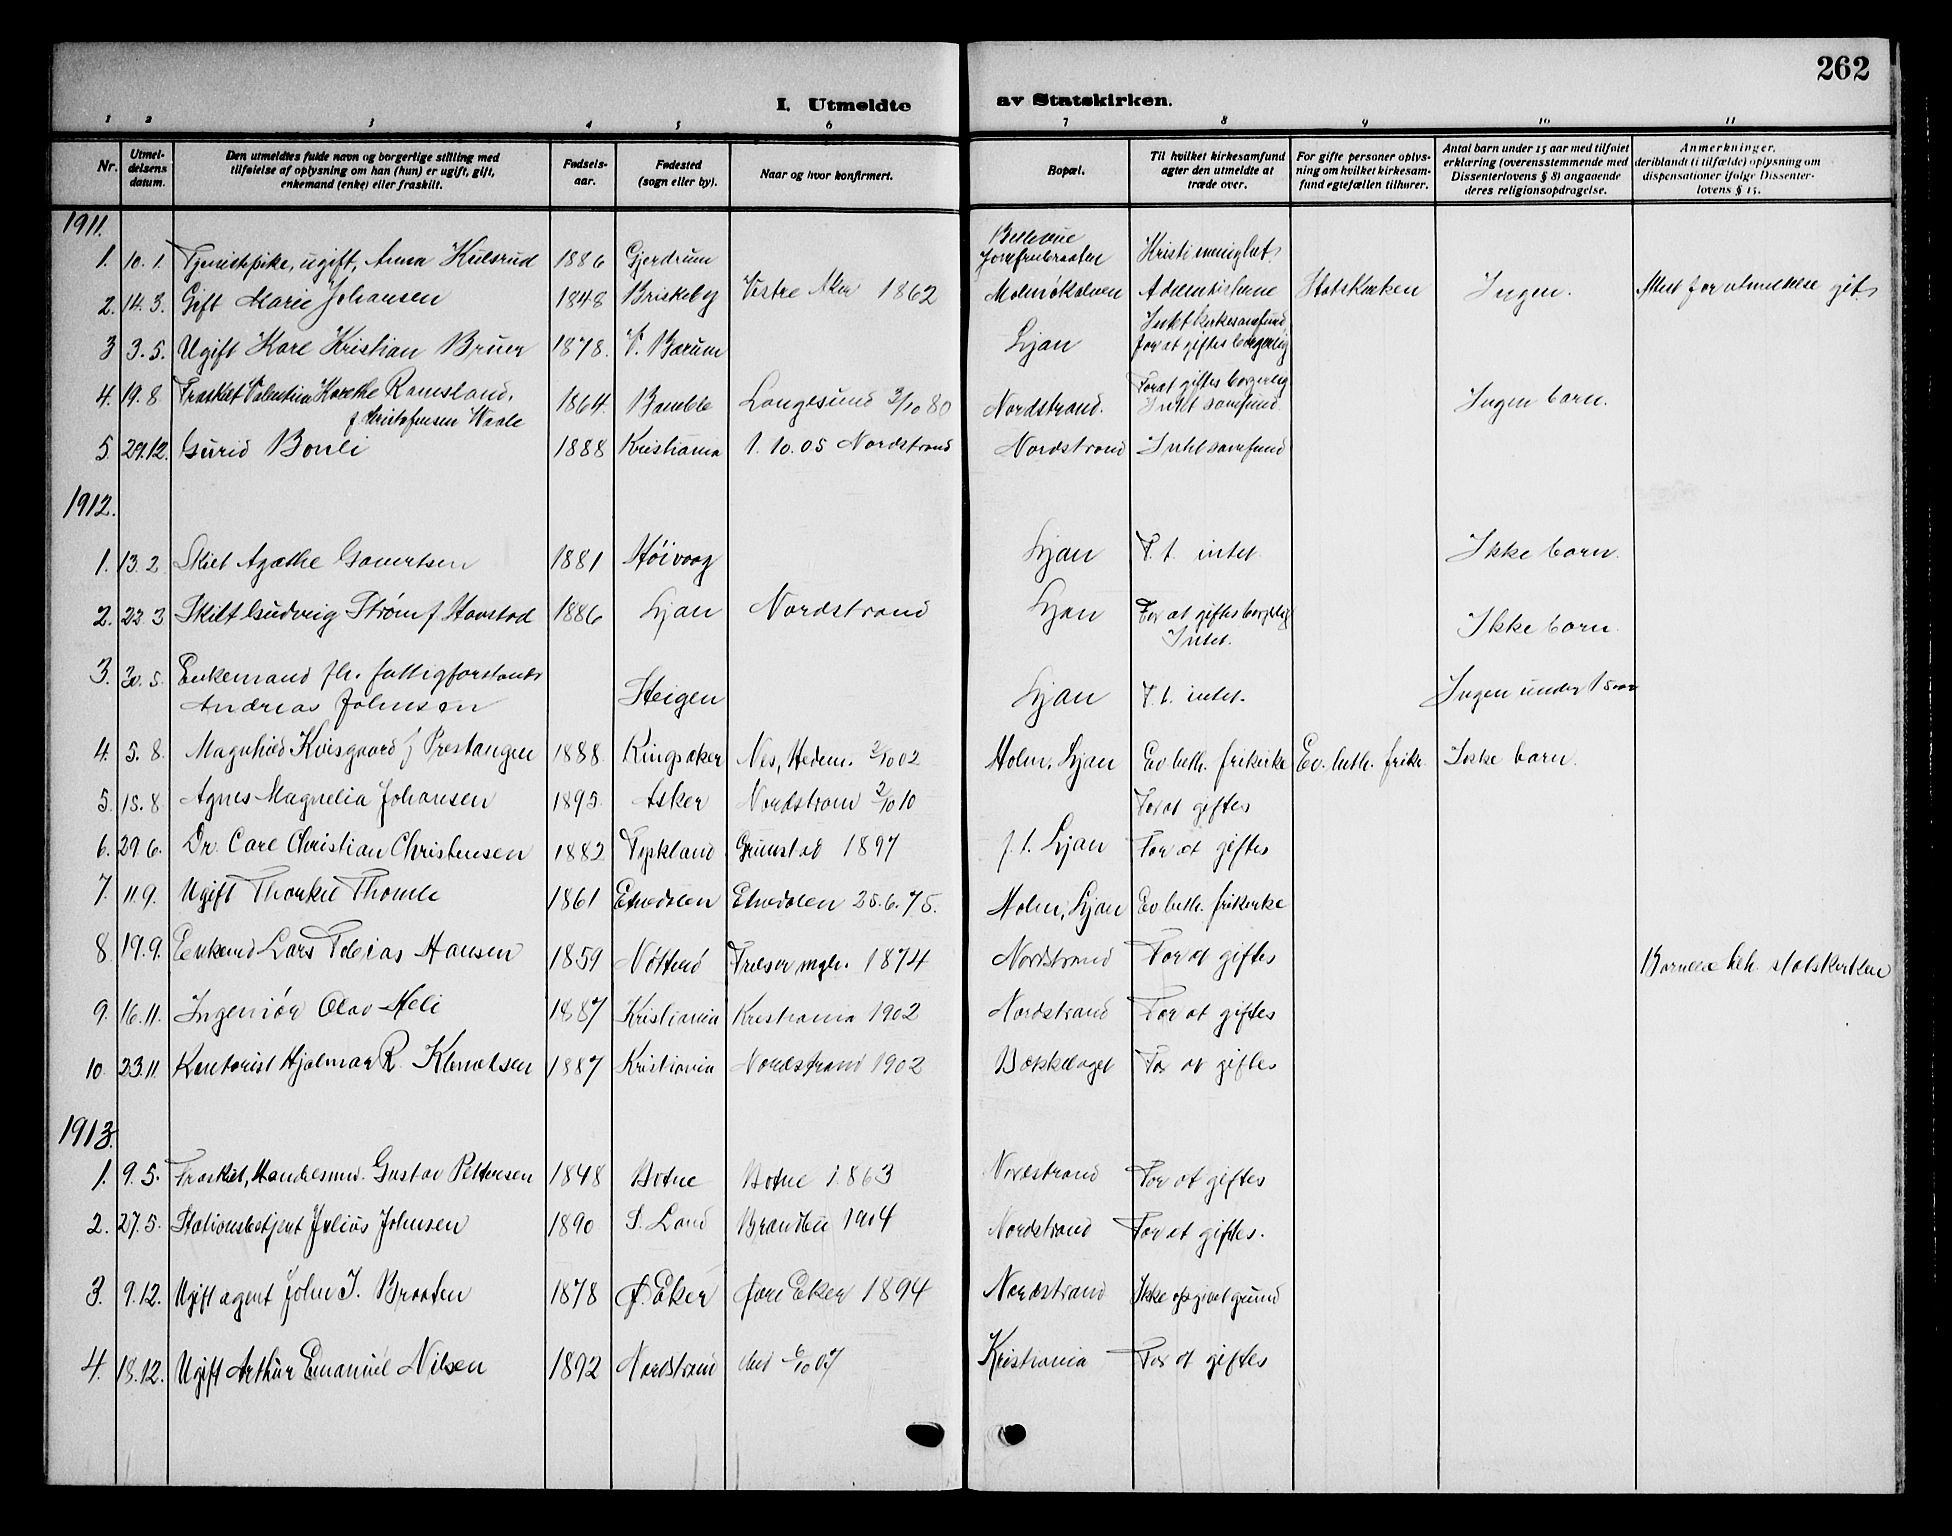 262
I. Utmeldte av Statskirken.
1 2 3 4 5 6 7 8 9 10 11
Nr.
Utmel-
delsens
datum.
Den utmeldtes fulde navn og borgerlige stilling med
tilføielse af oplysning om han (hun) er ugift, gift,
enkemand (enke) eller fraskilt.
Fødsels-
aar.
Fødested
(sogn eller by).
Naar og hvor konfirmert.
Bopæl.
Til hvilket kirkesamfund
agter den utmeldte at
træde over.
For gifte personer oplys-
ning om hvilket kirkesam-
fund egtefællen tilhører.
Antal barn under 15 aar med tilføiet
erklæring (overensstemmende med
Dissenterlovens § 8) angaaende
deres religionsopdragelse.
Anmerkninger,
deriblandt (i tilfælde) oplysning om
dispensationer ifølge Dissenter-
lovens § 15.
1911.
1. 10. 1. Tjenestepike, ugift, Anna Kulsrud 1886 Gjerdrum Bellevue Jomfrubraaten Kristi menighet
2. 14. 3. Gift Marie Johansen 1848 Briskeby Vestre Aker 1862 Malmøkalven Adventisterne Statskirken Ingen.
3 3. 5. Ugift Kristian Bruun 1878. V. Bærum Ljan Intet kirkesamfund, for at giftes borgerlig
4. 19. 8 Fraskilt Valentine Ramsland, f. Kristofersen Waale 1864. Bamble Langesund 3/10 80 Nordstrand. For at giftes borgerlig Intet samfund. Ingen barn.
5. 29.12. Gurid Bonli 1888 Kristiania 1. 10. 05 Nordstrand Nordstrand Intet samfund
1912.
1. 13. 2 Skilt Agathe Govertsen 1881 Høivaag Ljan F. t. intet. Ikke barn.
2. 22. 3 Skilt Ludvig Strøm f. 1886 Ljan Nordstrand Ljan For at giftes borgerlig Intet. Ikke barn.
3. 30. 5. Enkemand fh. fattigforstander
Andreas Johnsen Steigen Ljan F. t. intet. Ingen under 15 aar
4. 5. 8. Magnhild Kvisgaard f. Prestangen 1888. Ringsaker Nes, Hedem. 2/10 02 Holm, Ljan Ev. luth. frikirke Ev. luth. frikr. Ikke barn.
5. 15. 8 Agnes Magnelia Johansen 1895. Asker Nordstrand 2/10 10 For at giftes
6. 29 6. Dr. Carl Christian Christensen 1882 Tyskland Grimstad 1897 f. t. Ljan For at giftes
7. 11.9. Ugift Thorkil Thomle 1861 Etnedalen Etnedalen 25. 6. 75. Holm, Ljan Ev. luth. frikirke
8. 19.9. Enkemd Lars Tobias Hansen 1859 Nøtterø 1874 Nordstrand For at giftes Barnene beh. statskirken
9. 16.11. Ingeniør Olav Heli 1887 Kristiania Kristiania 1902 Nordstrand For at giftes
10. 23.11. Kontorist Hjalmar R. 1887 Kristiania Nordstrand 1902 Bækkelaget For at giftes
1913.
1. 9. 5. Fraskilt, Handelsmd. Gustav Pettersen 1848 Botne Botne 1863 Nordstrand For at giftes
2. 27. 5. Stationsbetjent Julius Johnsen 1890 S. Land Brandbu 1904 Nordstrand For at giftes.
3. 9.12. Ugift agent John J. Braaten 1878 Ø. Eker Øvre Eker 1894 Nordstrand Ikke opgivet grund
4. 18.12. Ugift Arthur Emanuel Nilsen 1892 Nordstrand 6/10 07 Kristiania For at giftes